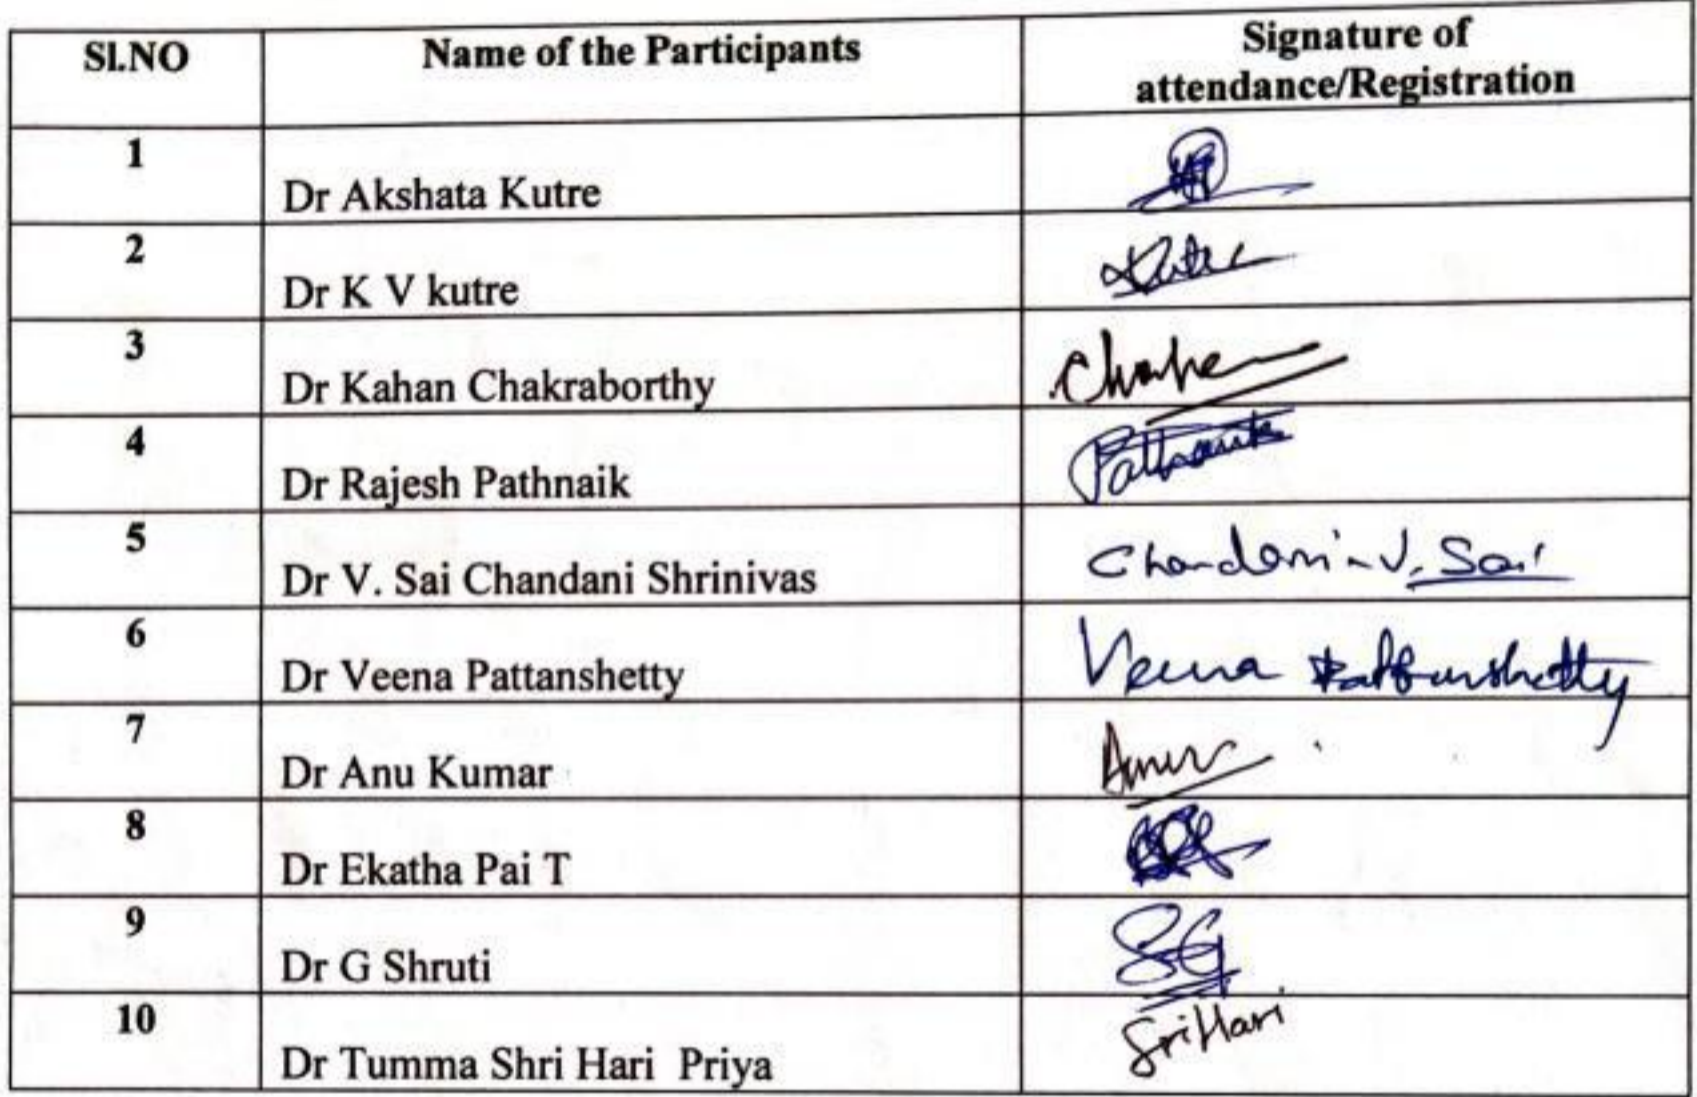 Sl.NO Name of the Participants Signature of
attendance/Registration
1
Dr Akshata Kutre
2
Dr K V kutre
3
Dr Kahan Chakraborthy
4
Dr Rajesh Pathnaik Pathnaik
5
Dr V. Sai Chandani Shrinivas Chandani V. Sai
6
Dr Veena Pattanshetty Veena Pattanshetty
7
Dr Anu Kumar
8
Dr Ekatha Pai T
9
Dr G Shruti SG
10
Dr Tumma Shri Hari Priya SriHari